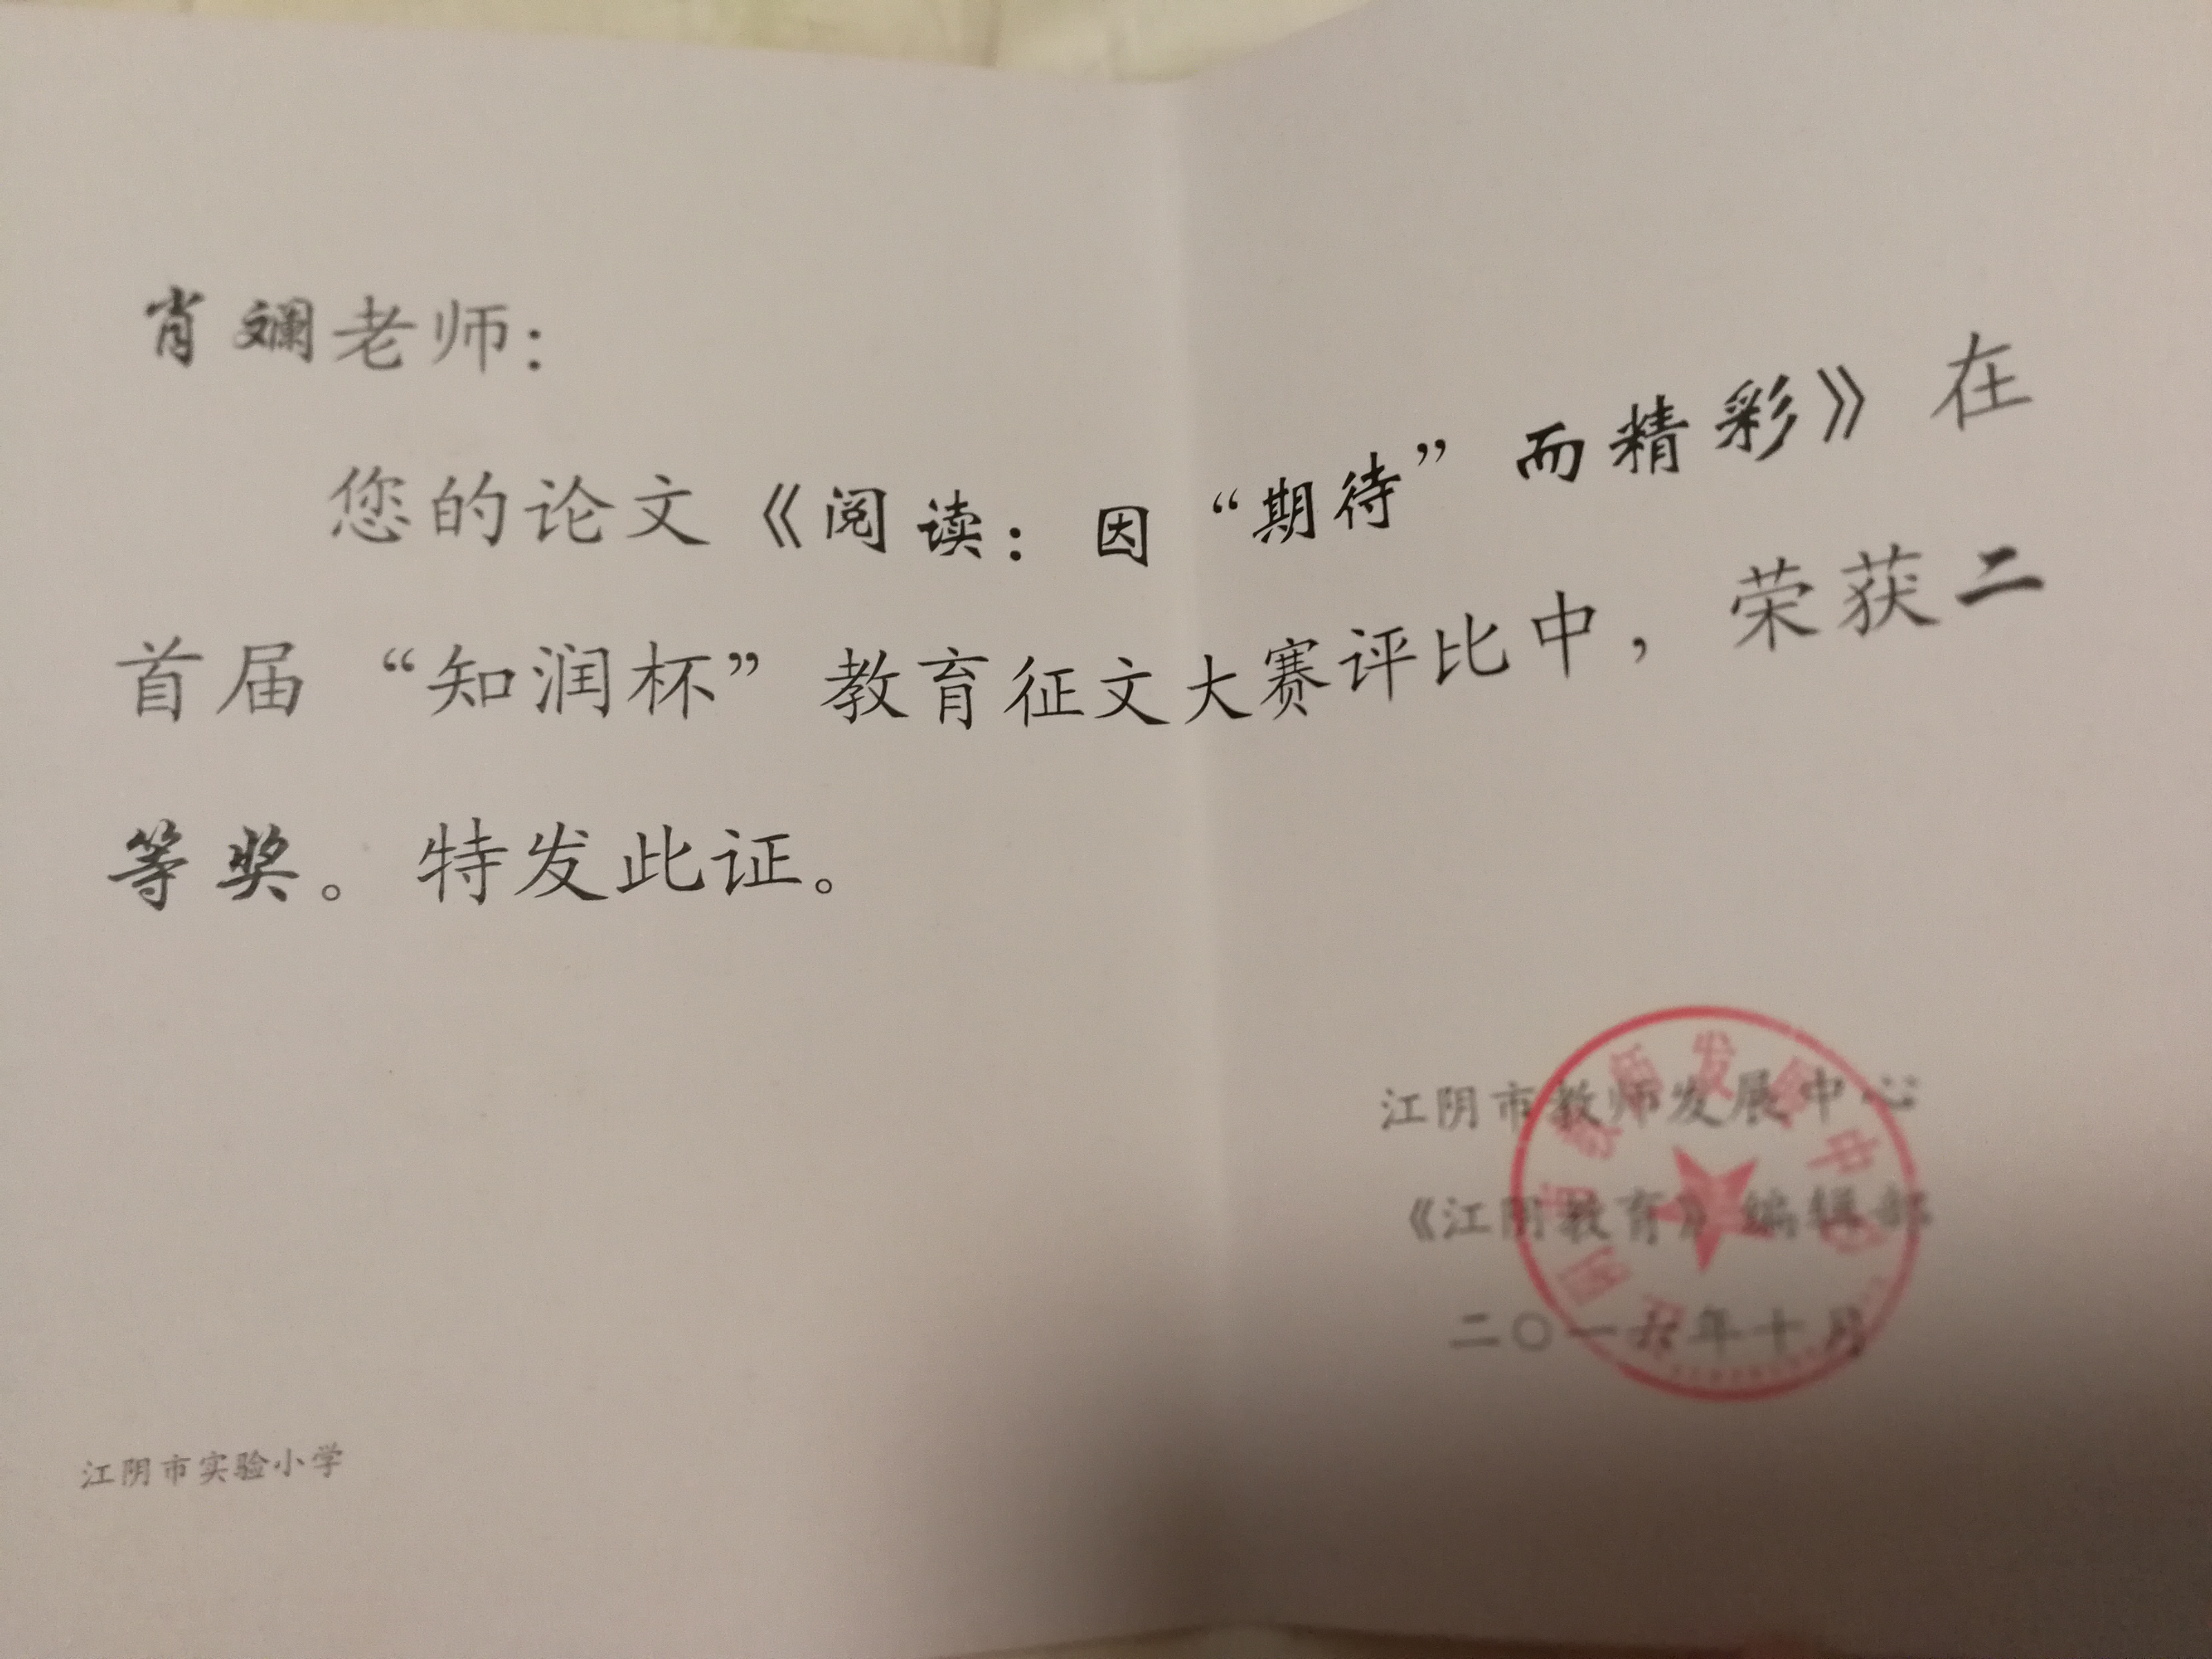 肖斓老师：
您的论文《阅读：因“期待”而精彩》在
首届“知润杯”教育征文大赛评比中，荣获二
等奖。特发此证。
江阴市教师发展中心
《江阴教育》编辑部
二〇一六年十月
江阴市教师发展中心
江阴市实验小学